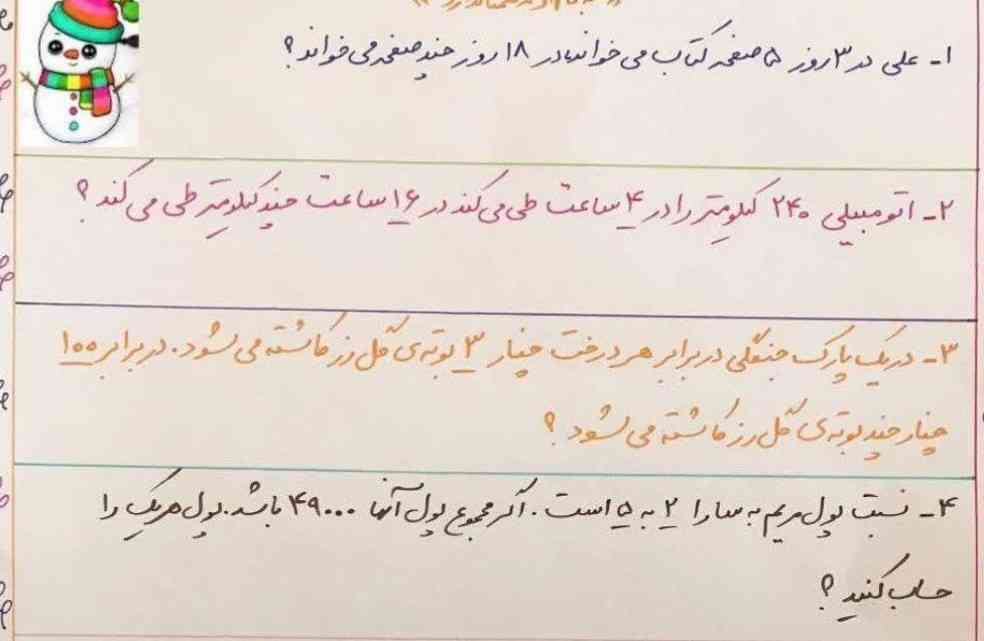 ۱- علی در ۳ روز ۵ صفحه کتاب می خواند در ۱۸ روز چند صفحه می خواند؟
۲- اتومبیلی ۲۴۰ کیلومتر را در ۴ ساعت طی می کند در ۱۶ ساعت چند کیلومتر طی می کند؟
۳- در یک پارک جنگلی در برابر هر درخت چنار ۳ بوته ی گل رز کاشته می شود. در برابر ۱۰۰
چنار چند بوته ی گل رز کاشته می شود؟
۴- نسبت پول مریم به سارا ۲ به ۵ است. اگر مجموع پول آنها ۴۹۰۰۰ باشد. پول هریک را
حساب کنید؟